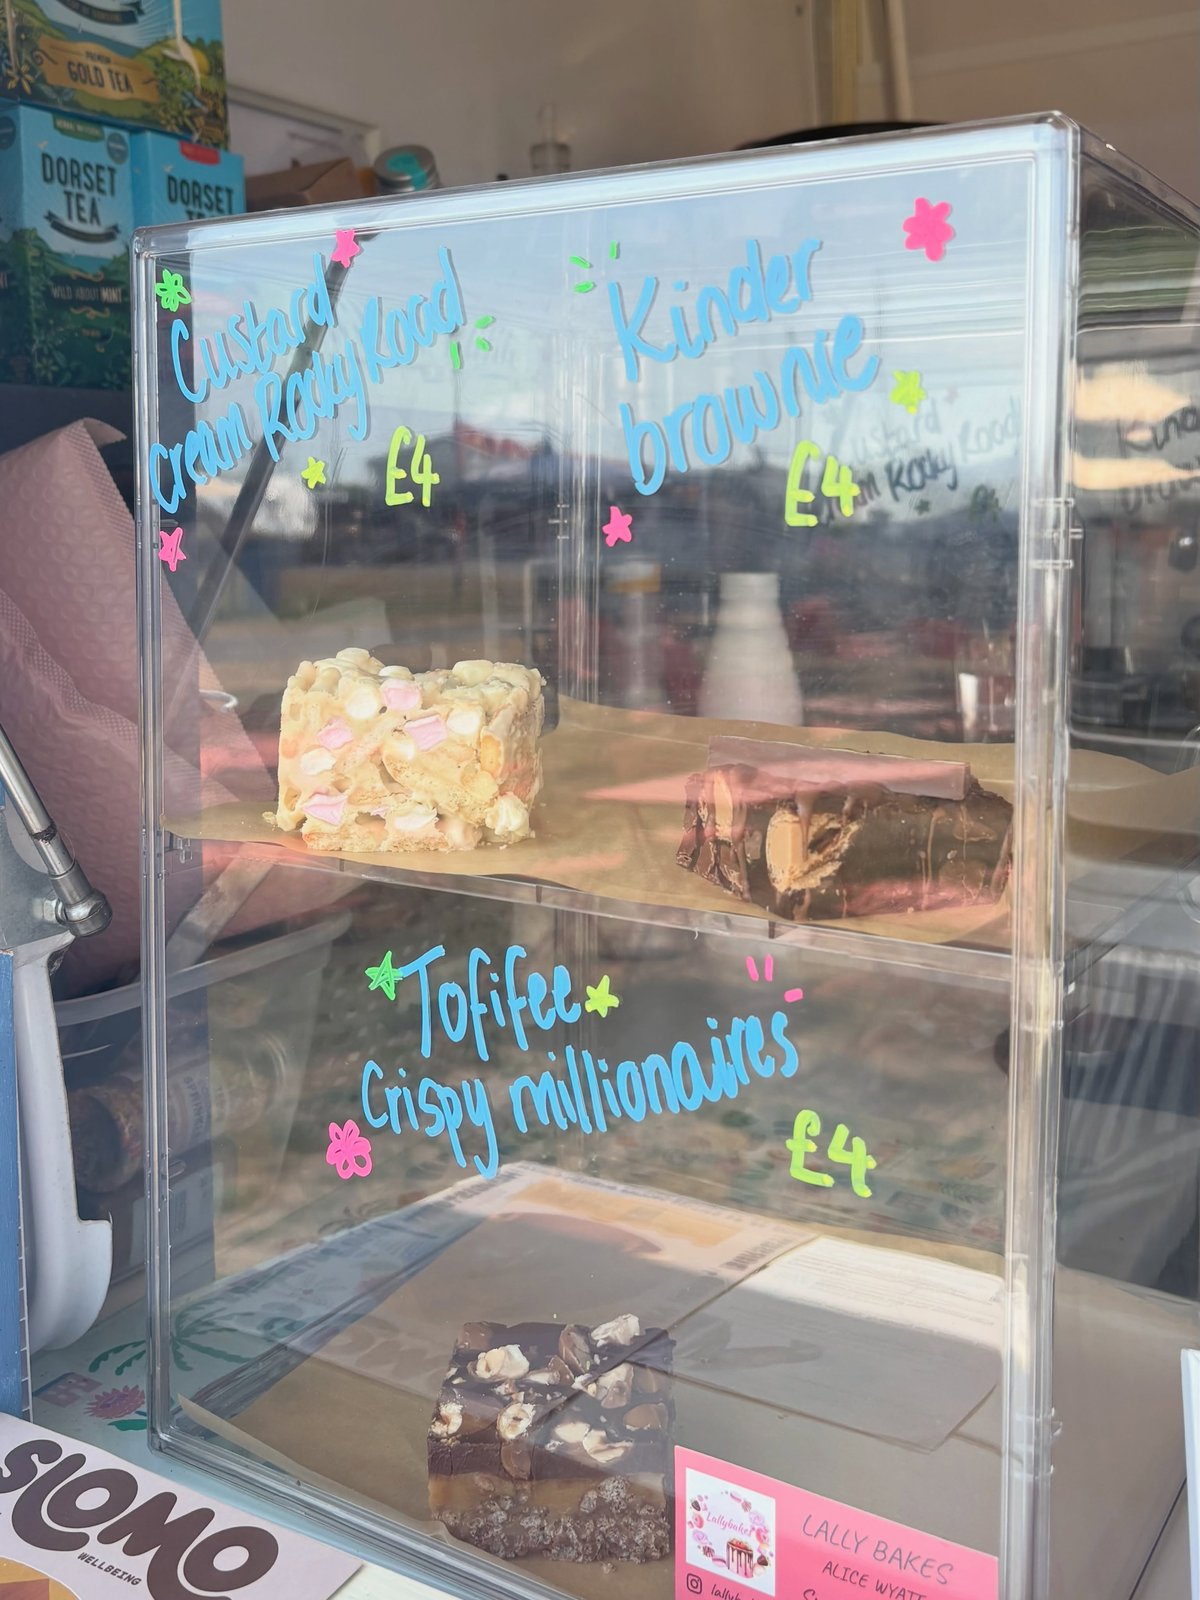 PREMIUM
GOLD TEA
HERBAL INFUSION
DORSET
TEA
WILD ABOUT MINT
DORSET
Custard
cream Rocky Road
£4
Kinder
brownie
£4
Tofifee
Crispy millionaires
£4
SLOMO
WELLBEING
Lallybakes
LALLY BAKES
ALICE WYATT